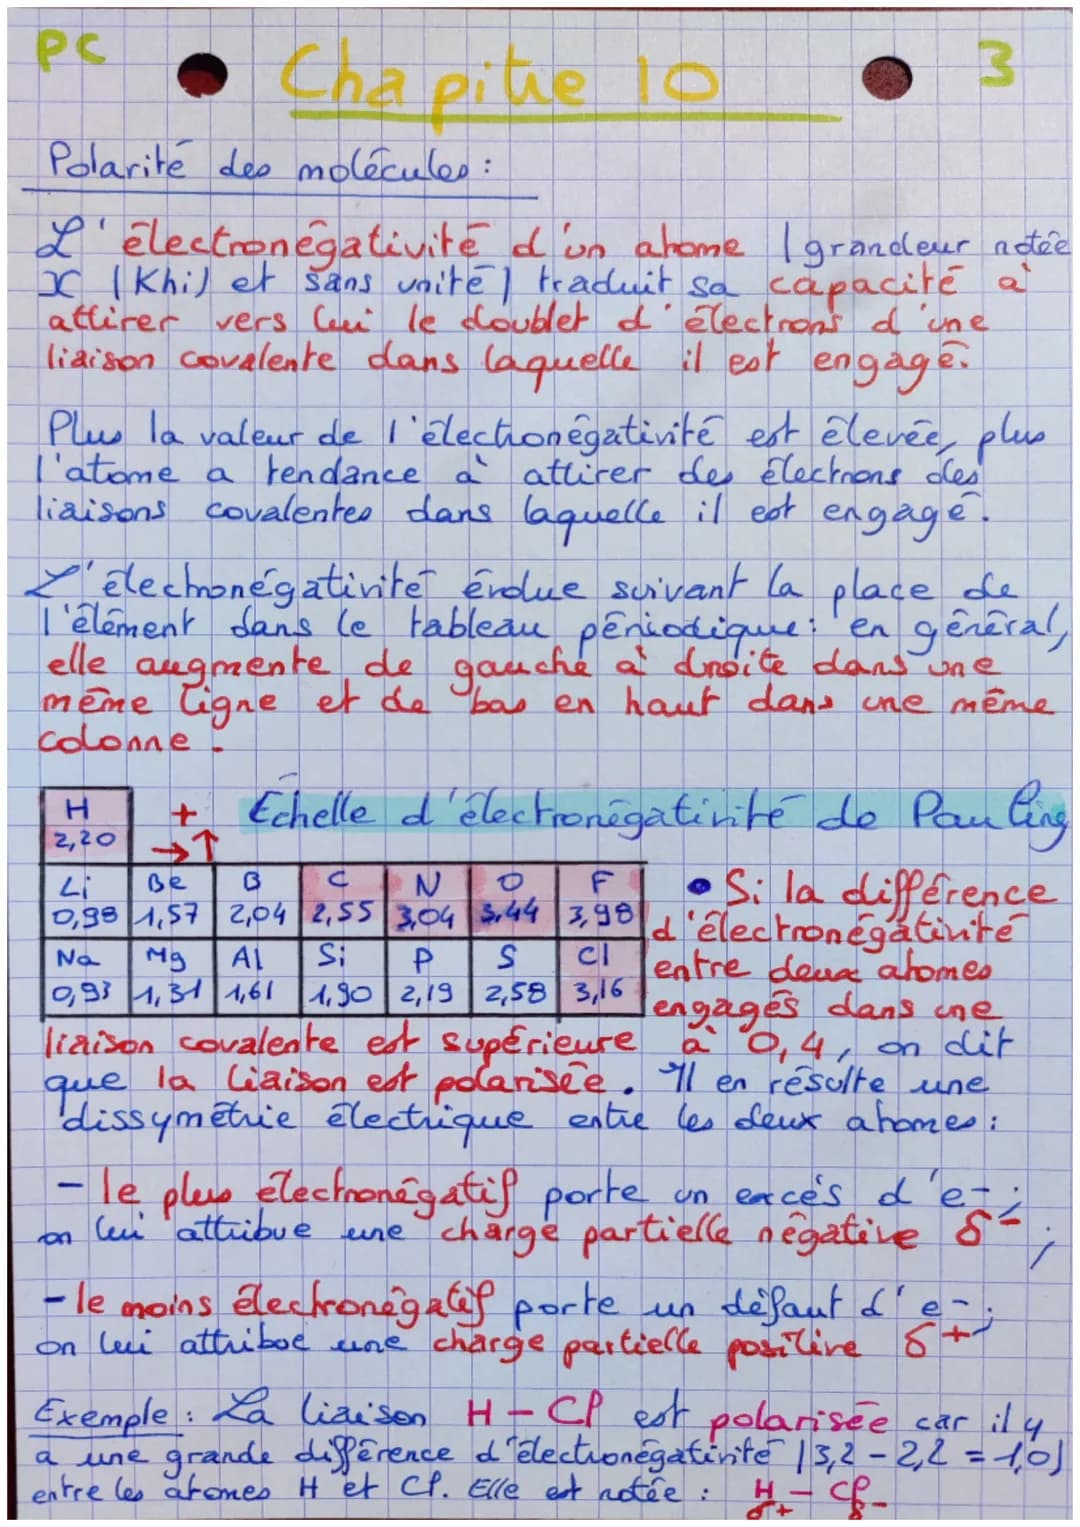 PC
Chapitre 10
3
Polarité des molécules :
L'électronégativité d'un atome (grandeur notée
χ (Khi) et sans unité) traduit sa capacité à
attirer vers lui le doublet d'électrons d'une
liaison covalente dans laquelle il est engagé.
Plus la valeur de l'électronégativité est élevée, plus
l'atome a tendance à attirer des électrons des
liaisons covalentes dans laquelle il est engagé.
L'électronégativité évolue suivant la place de
l'élément dans le tableau périodique : en général,
elle augmente de gauche à droite dans une
même ligne et de bas en haut dans une même
colonne.
Échelle d'électronégativité de Pauling
H
2,20
+
→↑
Li Be B C N O F
0,98 1,57 2,04 2,55 3,04 3,44 3,98
Na Mg Al Si P S Cl
0,93 1,31 1,61 1,90 2,19 2,58 3,16
• Si la différence
d'électronégativité
entre deux atomes
engagés dans une
liaison covalente est supérieure à 0,4, on dit
que la liaison est polarisée. Il en résulte une
dissymétrie électrique entre les deux atomes :
- le plus électronégatif porte un excés d'e- ;
on lui attribue une charge partielle négative δ- ;
- le moins électronégatif porte un défaut d'e- ;
on lui attribue une charge partielle positive δ+
Exemple : La liaison H - Cl est polarisée car il y
a une grande différence d'électronégativité (3,2 - 2,2 = 1,0)
entre les atomes H et Cl. Elle est notée : H - Cl
δ+ δ-